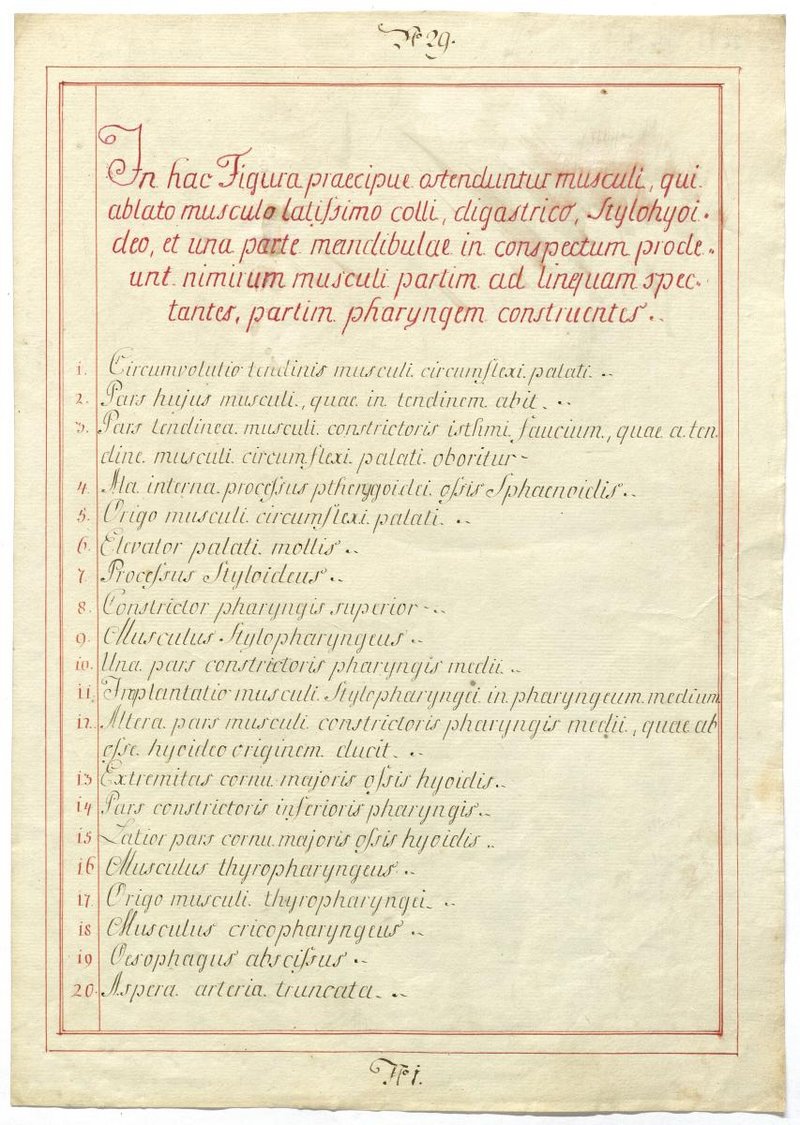 No 29.
In hac Figura praecipue ostenduntur musculi, qui
ablato musculo latissimo colli, digastrico, Stylohyoi-
deo, et una parte mandibulae in conspectum prode-
unt nimirum musculi partim ad linguam spec-
tantes, partim pharyngem construentes.
1. Circumvolutio tendinis musculi circumflexi palati.
2. Pars hujus musculi, quae in tendinem abit.
3. Pars tendinea musculi constrictoris isthmi faucium, quae a ten
dine musculi circumflexi palati oboritur
4. Ala interna processus ptherygoidei ossis Sphaenoidis.
5. Origo musculi circumflexi palati.
6. Elevator palati mollis.
7 Processus Styloideus.
8. Constrictor pharyngis superior.
9. Musculus Stylopharyngeus.
10. Una pars constrictoris pharyngis medii.
11. Implantatio musculi Stylopharyngei in pharyngeum medium
12. Altera pars musculi constrictoris pharyngis medii, quae ab
osse hyoideo originem ducit.
13 Extremitas cornu majoris ossis hyoidis.
14 Pars constrictoris inferioris pharyngis.
15 Latior pars cornu majoris ossis hyoidis.
16 Musculus thyropharyngeus.
17. Origo musculi thyropharyngei.
18 Musculus cricopharyngeus.
19 Oesophagus abscissus.
20. Aspera arteria truncata.
No 1.